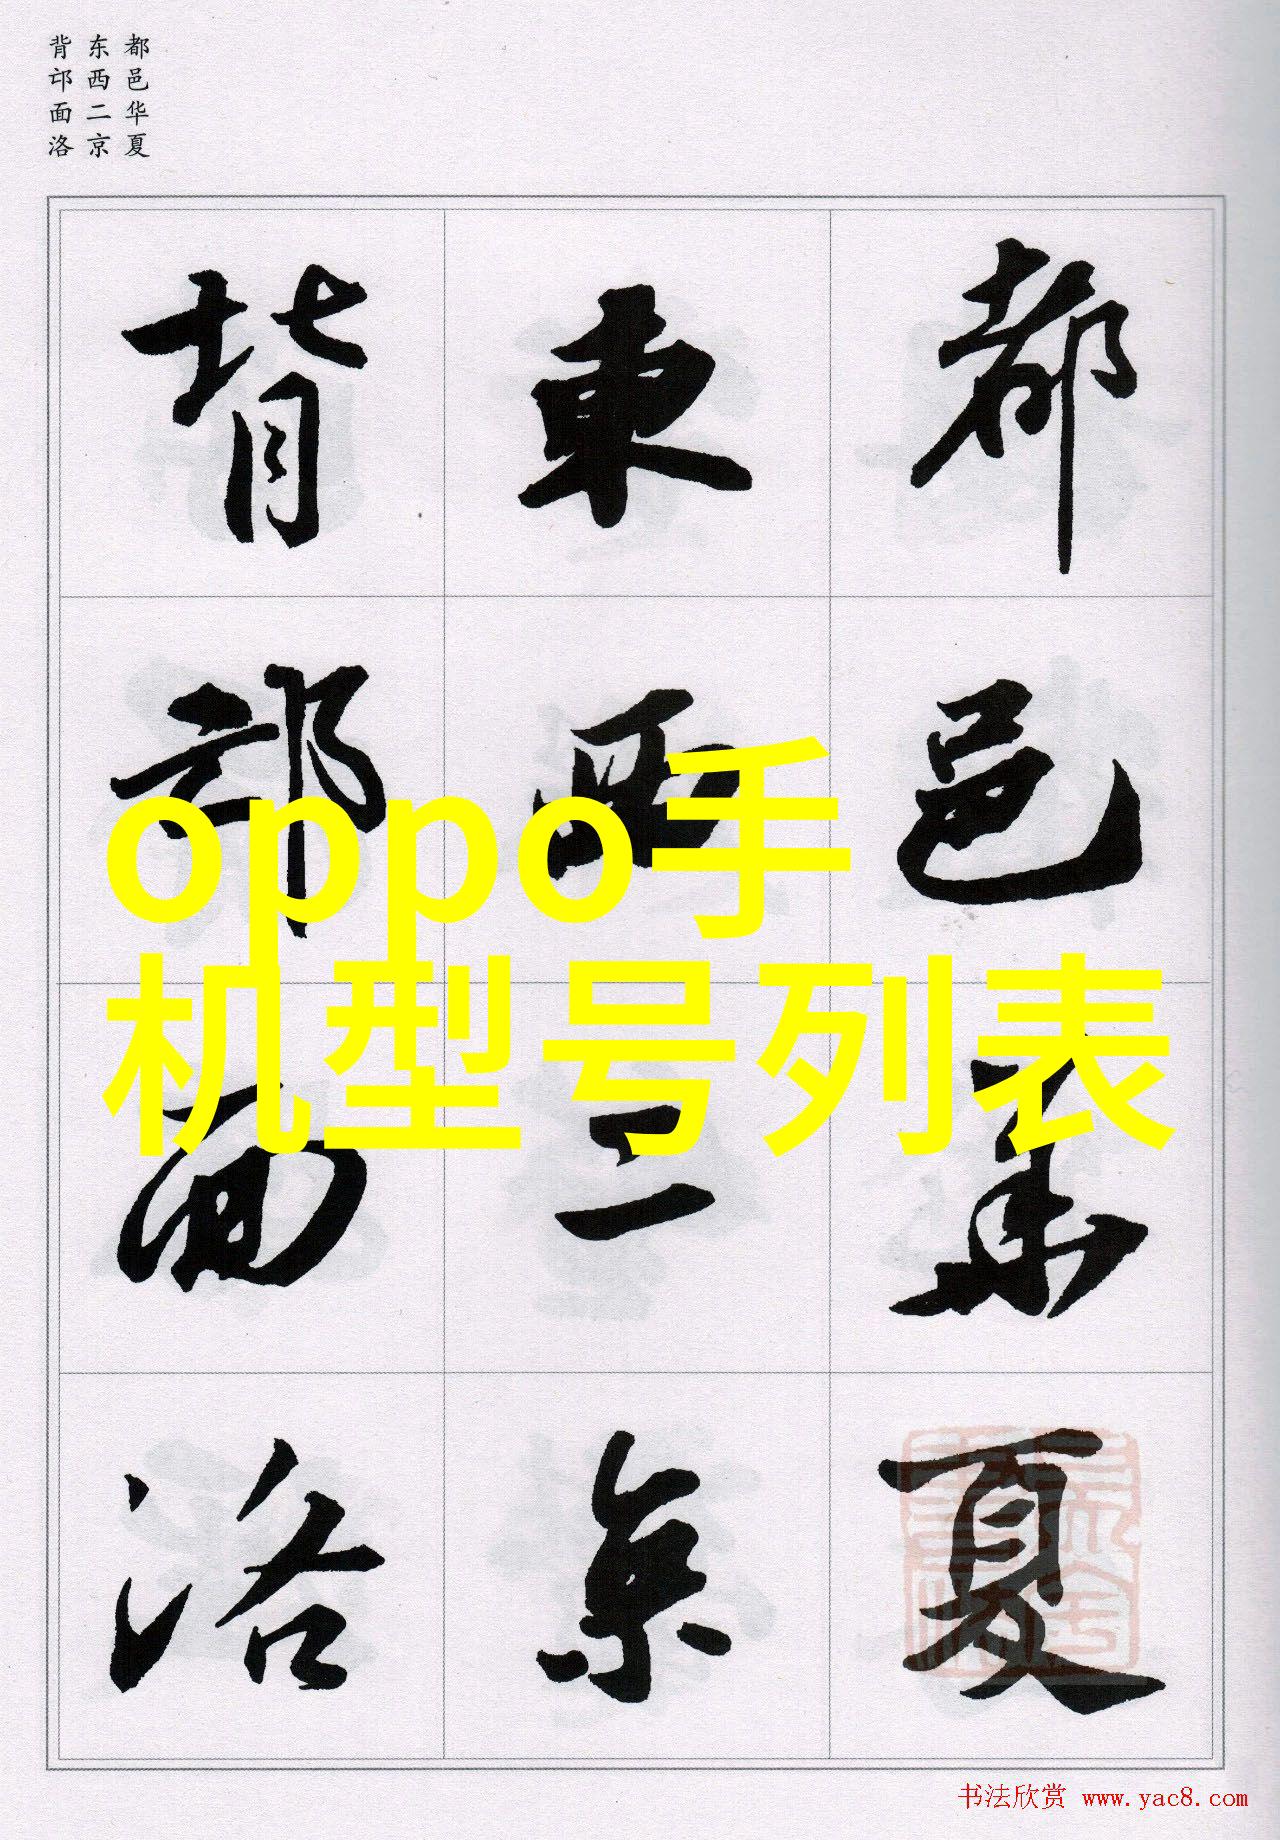 都邑华夏
东西二京
背邙面洛
都邑華夏
東西二京
背邙面洛
oppo手
机型号列表
书法欣赏 www.yac8.com